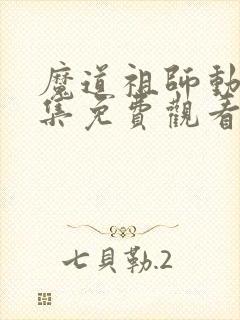 魔道祖師動
集免費觀看
七貝勒.2